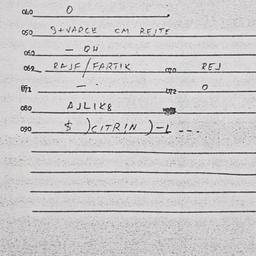 040 0
050 S+VARCE CM REJTE
060 - OH
069 RAJF/FARTIK 070 REJ
071 - . 072 0
080 AJLIK8
090 $ )CITRIN)-L ---